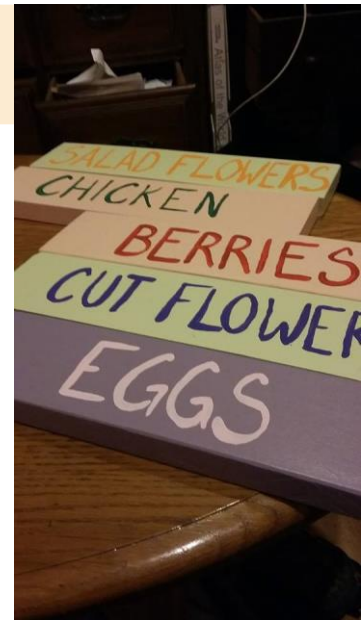 SALAD FLOWERS
CHICKEN
BERRIES
CUT FLOWER
EGGS